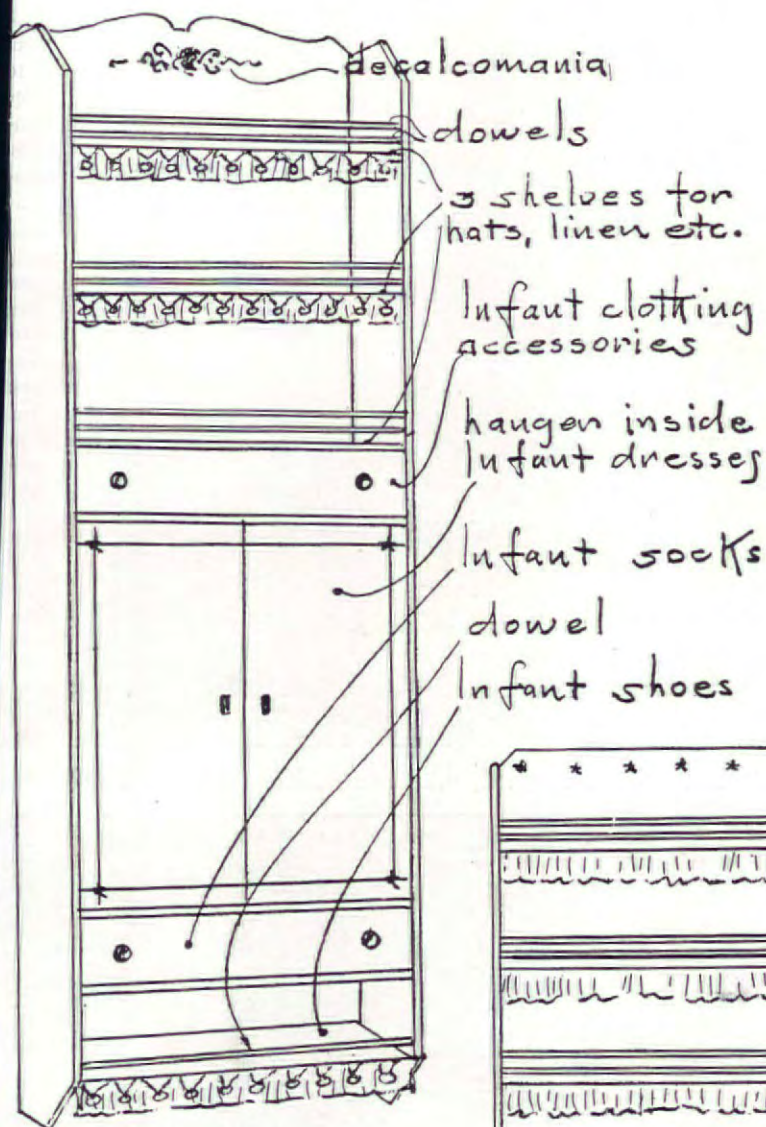 decalcomania
dowels
3 shelves for
hats, linen etc.
Infant clothing
accessories
hanger inside
Infant dresses
Infant socks
dowel
Infant shoes